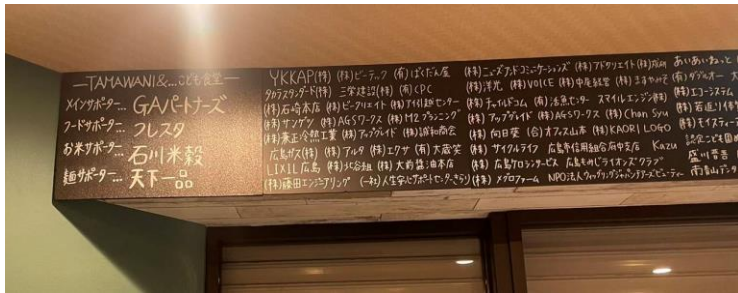 —TAMAWANI&...こども食堂—
メインサポーター... GAパートナーズ
フードサポーター... フレスタ
お米サポーター... 石川米穀
麺サポーター... 天下一品
YKKAP(株) (株)ビーテック (有)ばくだん屋 (株)ニューズ・アンド・コミュニケーションズ (株)アドクリエイト(株) あいあいねっと
タカラスタンダード(株) 三栄建設(株) (有)CPC (株)洋光 (株)VOICE (株)中庭経営 (株)ますやみそ (有)ダブルオー
(株)石崎本店 (株)ビークリエイト (株)アイ引越センター (株)チャイルドコム (有)活魚センター スマイルエンジン(株) (株)エコーシステム
(株)サンゲツ (株)AGSワークス (株)M2プランニング (株)アップグレイド (株)AGSワークス (株)Chan Syu (株)若返り
(株)兼正冷熱工業 (株)アップグレイド (株)誠和商会 (株)向日葵 (合)オフィス山本 (株)KAORI LOGO (株)モイスティーヌ
広島ガス(株) (株)アルタ (株)エクサ (有)大蔵笑 (株)サイクルライフ 広島市信用組合府中支店 Kazu 認定こども園
LIXIL広島 (株)北谷組 (株)大前醤油本店 (株)広島クロシンサービス 広島もみじライオンズクラブ
(株)藤田エンジニアリング (一社)人生安心サポートセンターきらり (株)メグロファーム NPO法人ウィッグリングジャパン